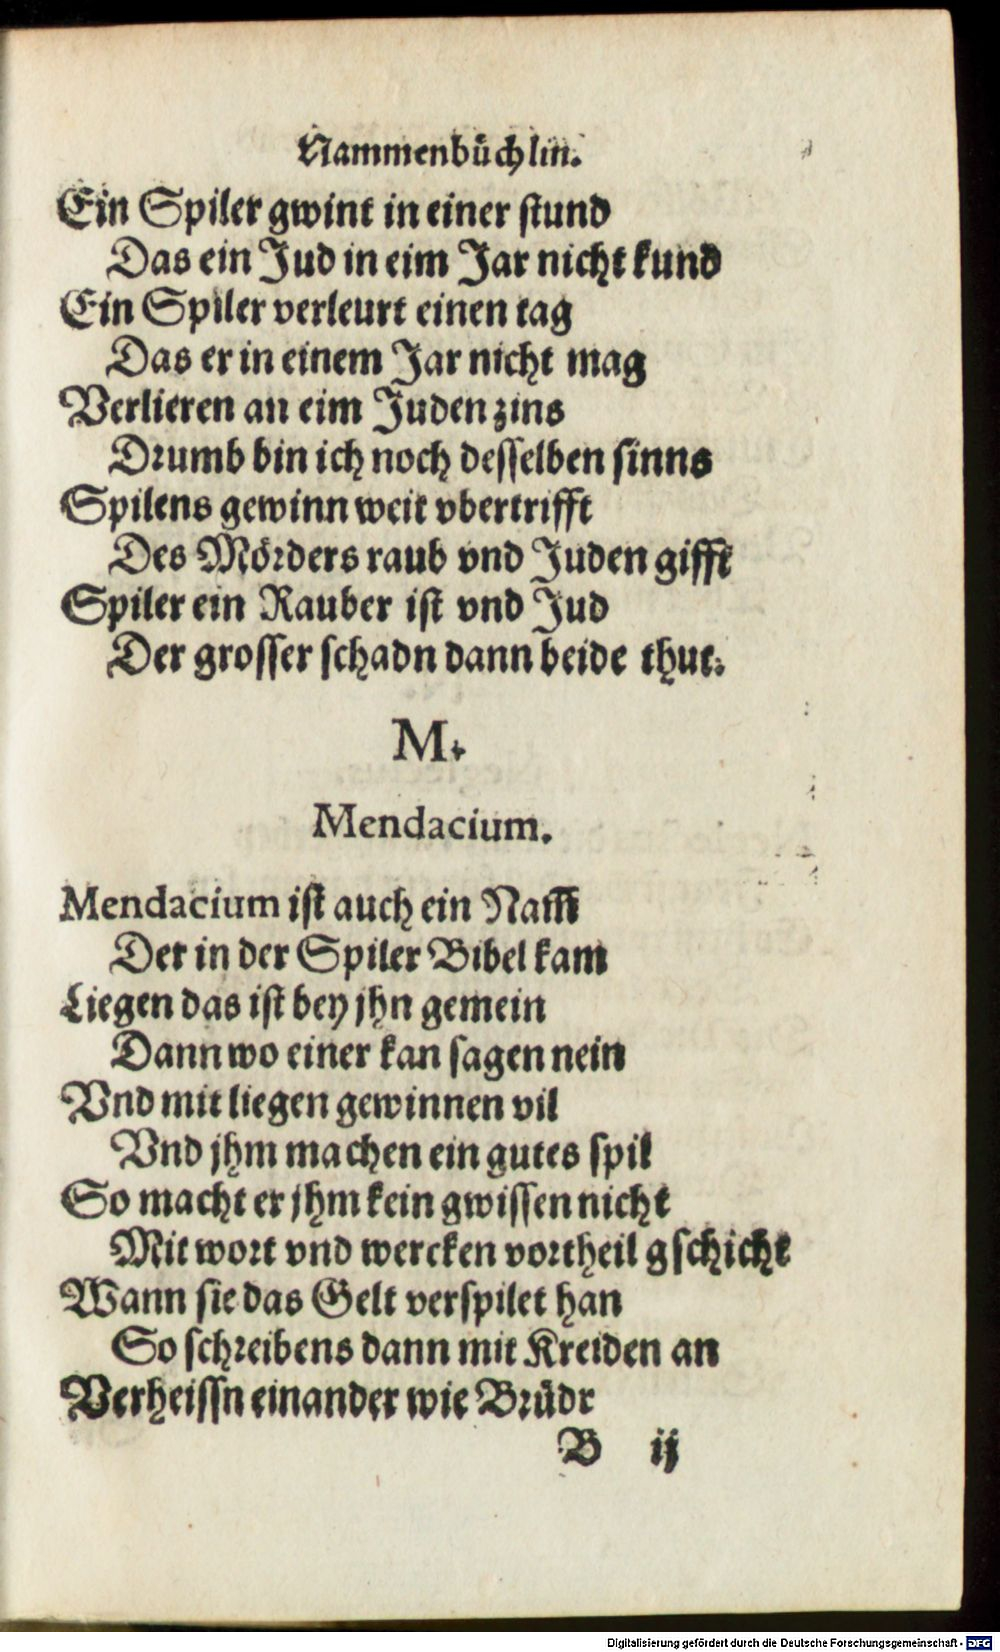 Nammenbüchlin.
Ein Spiler gwint in einer stund
Das ein Jud in eim Jar nicht kund
Ein Spiler verleurt einen tag
Das er in einem Jar nicht mag
Verlieren an eim Juden zins
Drumb bin ich noch desselben sinns
Spilens gewinn weit vbertrifft
Des Mörders raub vnd Juden gifft
Spiler ein Rauber ist vnd Jud
Der grosser schadn dann beide thut.
M.
Mendacium.
Mendacium ist auch ein Nam̃
Der in der Spiler Bibel kam
Liegen das ist bey jhn gemein
Dann wo einer kan sagen nein
Vnd mit liegen gewinnen vil
Vnd jhm machen ein gutes spil
So macht er jhm kein gwissen nicht
Mit wort vnd wercken vortheil gschicht
Wann sie das Gelt verspilet han
So schreibens dann mit Kreiden an
Verheissn einander wie Brüdr
B ij
Digitalisierung gefördert durch die Deutsche Forschungsgemeinschaft - DFG